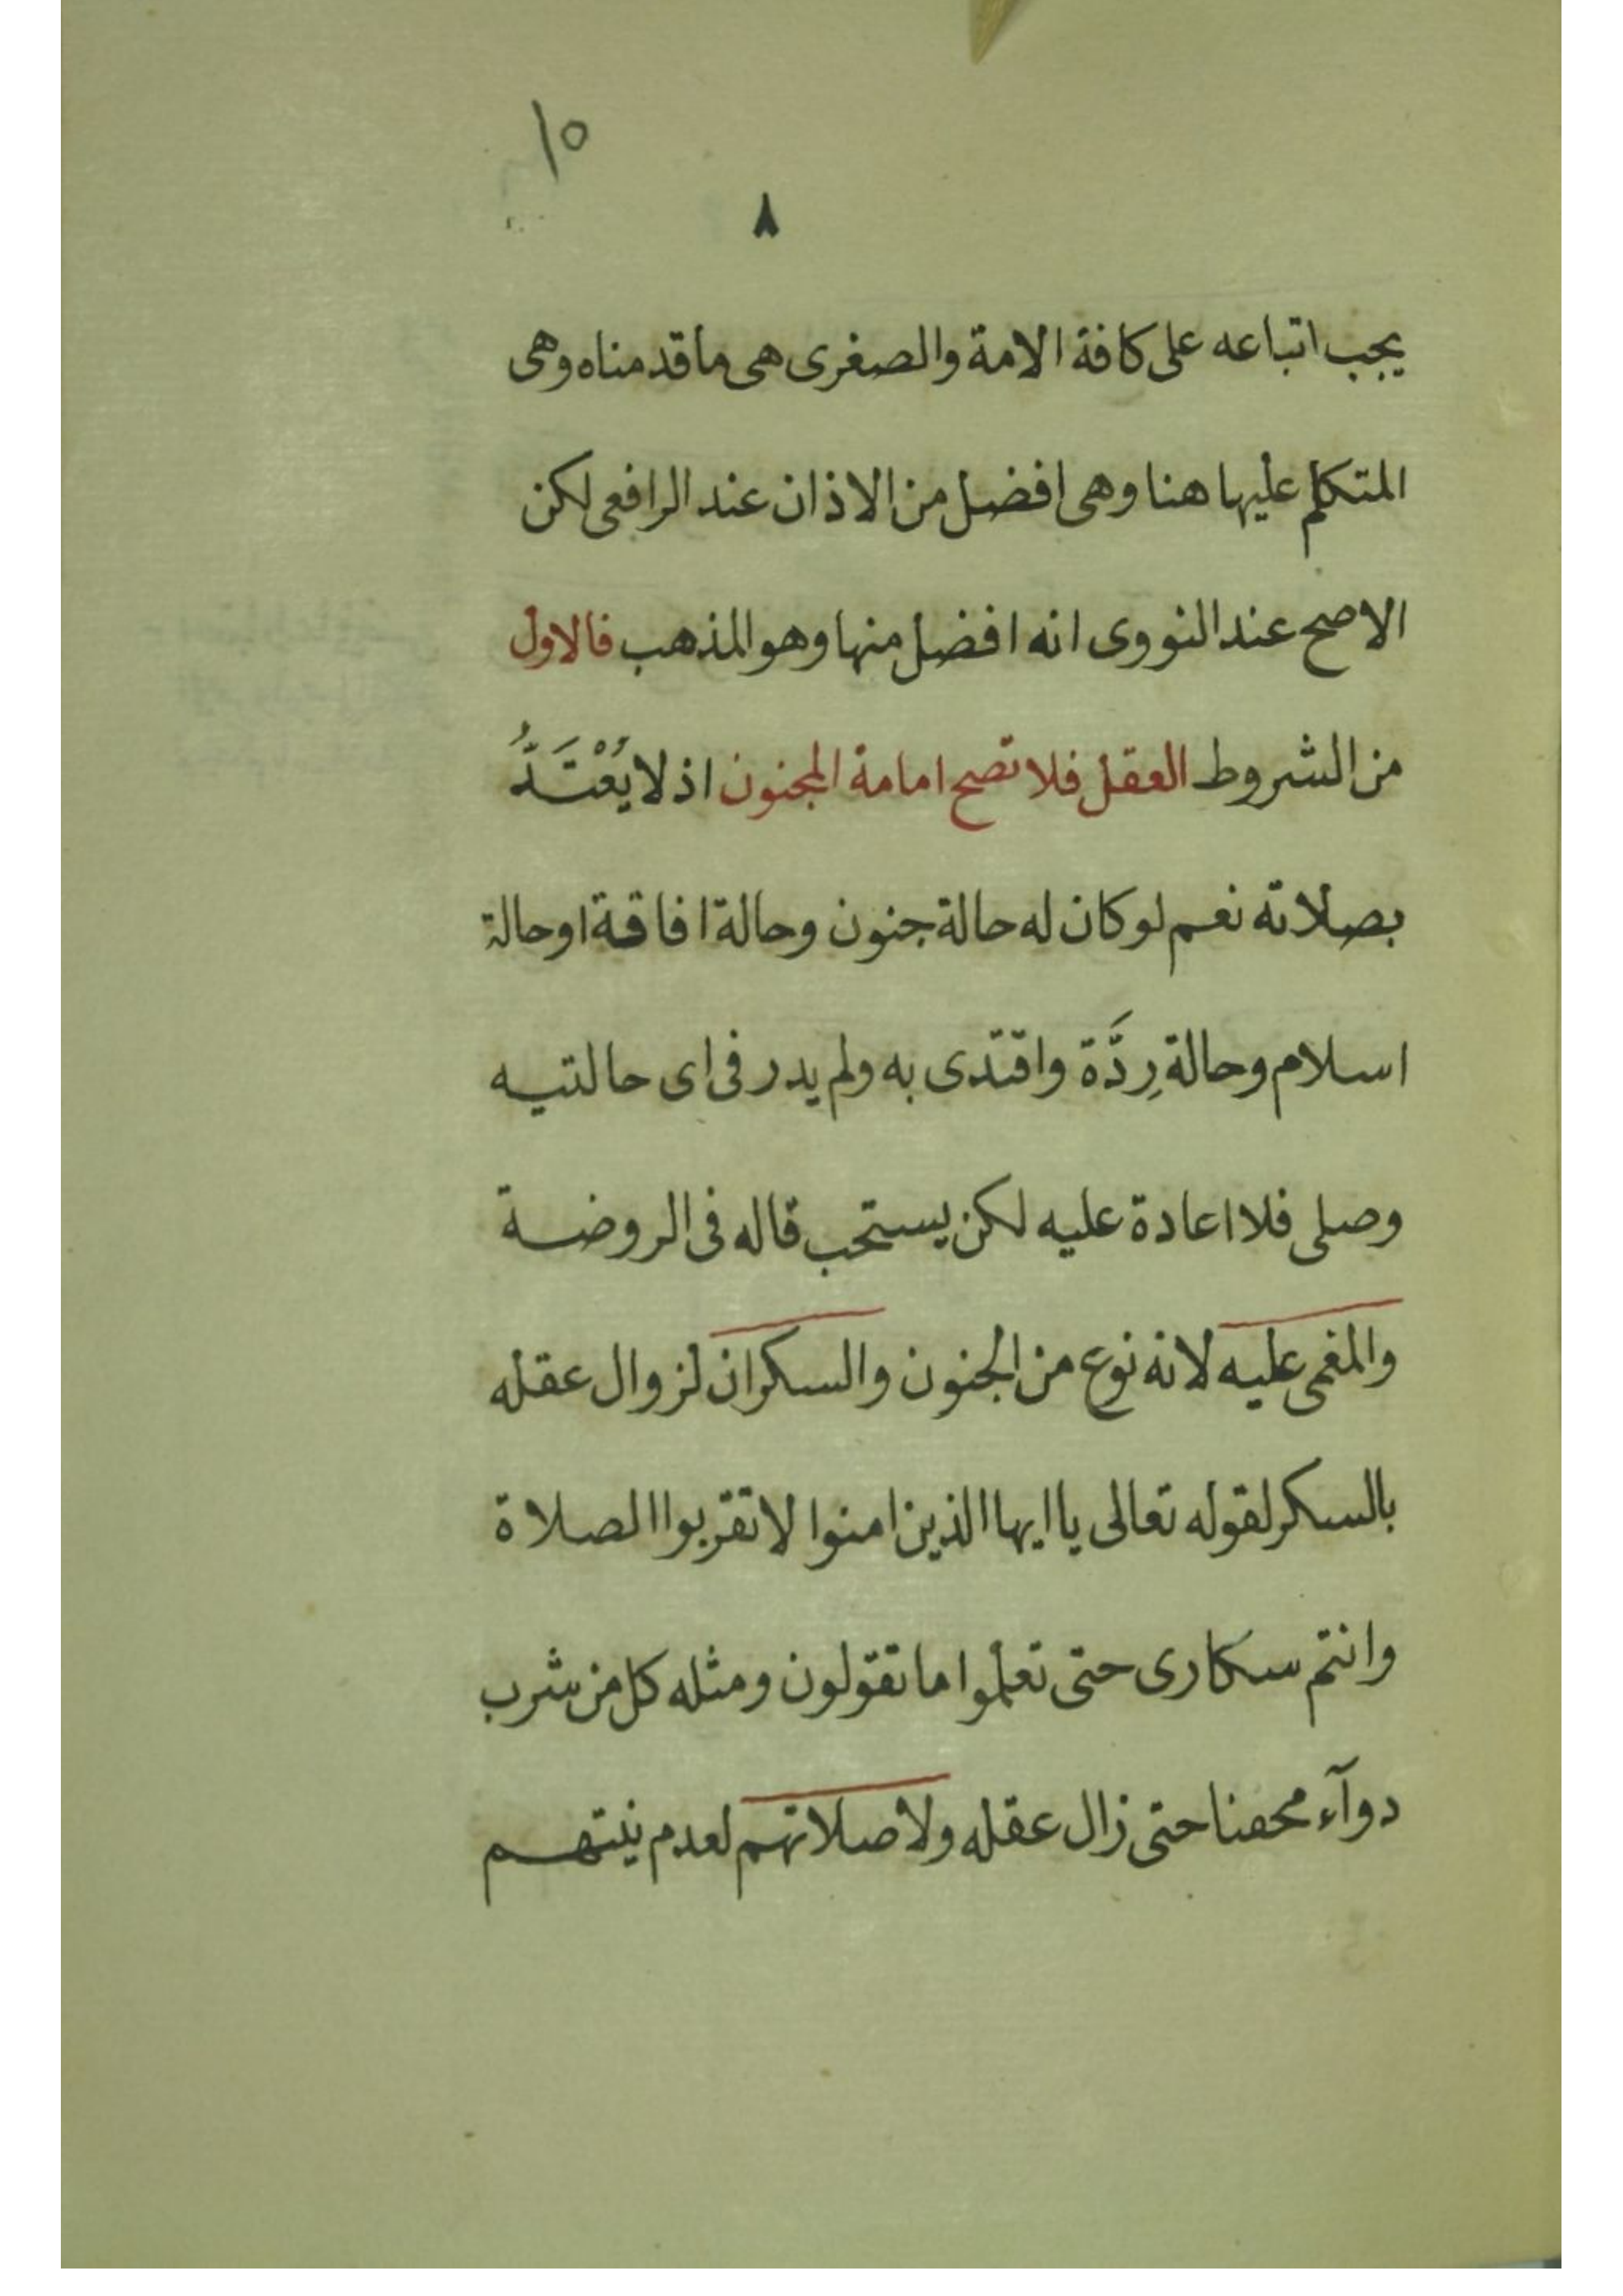 ١٥
٨
يجب اتباعه على كافة الامة والصغرى هى ما قدمناه وهى
المتكلم عليها هنا وهى افضل من الاذان عند الرافعى لكن
الاصح عند النووى انه افضل منها وهو المذهب فالاول
من الشروط العقل فلا تصح امامة المجنون اذ لا يُعْتَدُّ
بصلاته نعم لو كان له حالة جنون وحالة افاقة او حالة
اسلام وحالة رِدَّة واقتدى به ولم يدر فى اى حالتيه
وصلى فلا اعادة عليه لكن يستحب قاله فى الروضة
والمغمى عليه لانه نوع من الجنون والسكران لزوال عقله
بالسكر لقوله تعالى يا ايها الذين امنوا لا تقربوا الصلاة
وانتم سكارى حتى تعلموا ما تقولون ومثله كل من شرب
دوآء محضنا حتى زال عقله ولا صلاتهم لعدم نيتهم